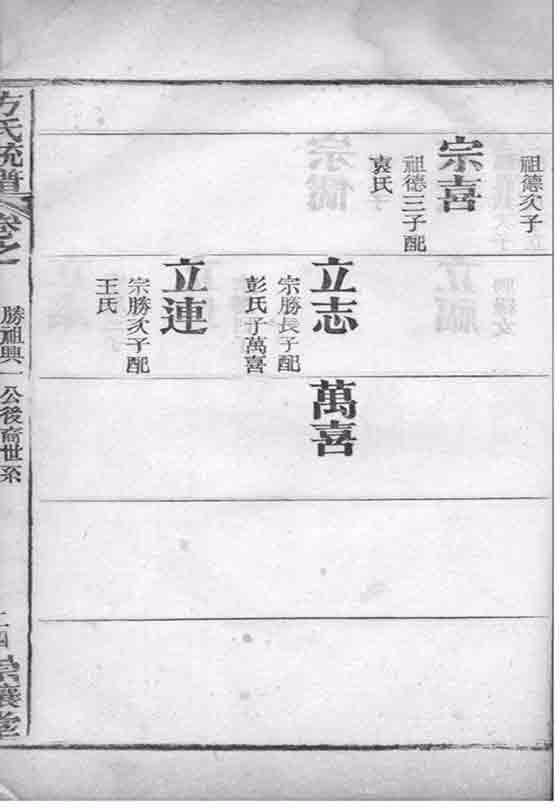 祖德次子
宗喜
祖德三子配
袁氏
立志
宗勝長子配
彭氏子萬喜
立連
宗勝次子配
王氏
萬喜
方氏統譜
卷之一
勝祖興一公後裔世系